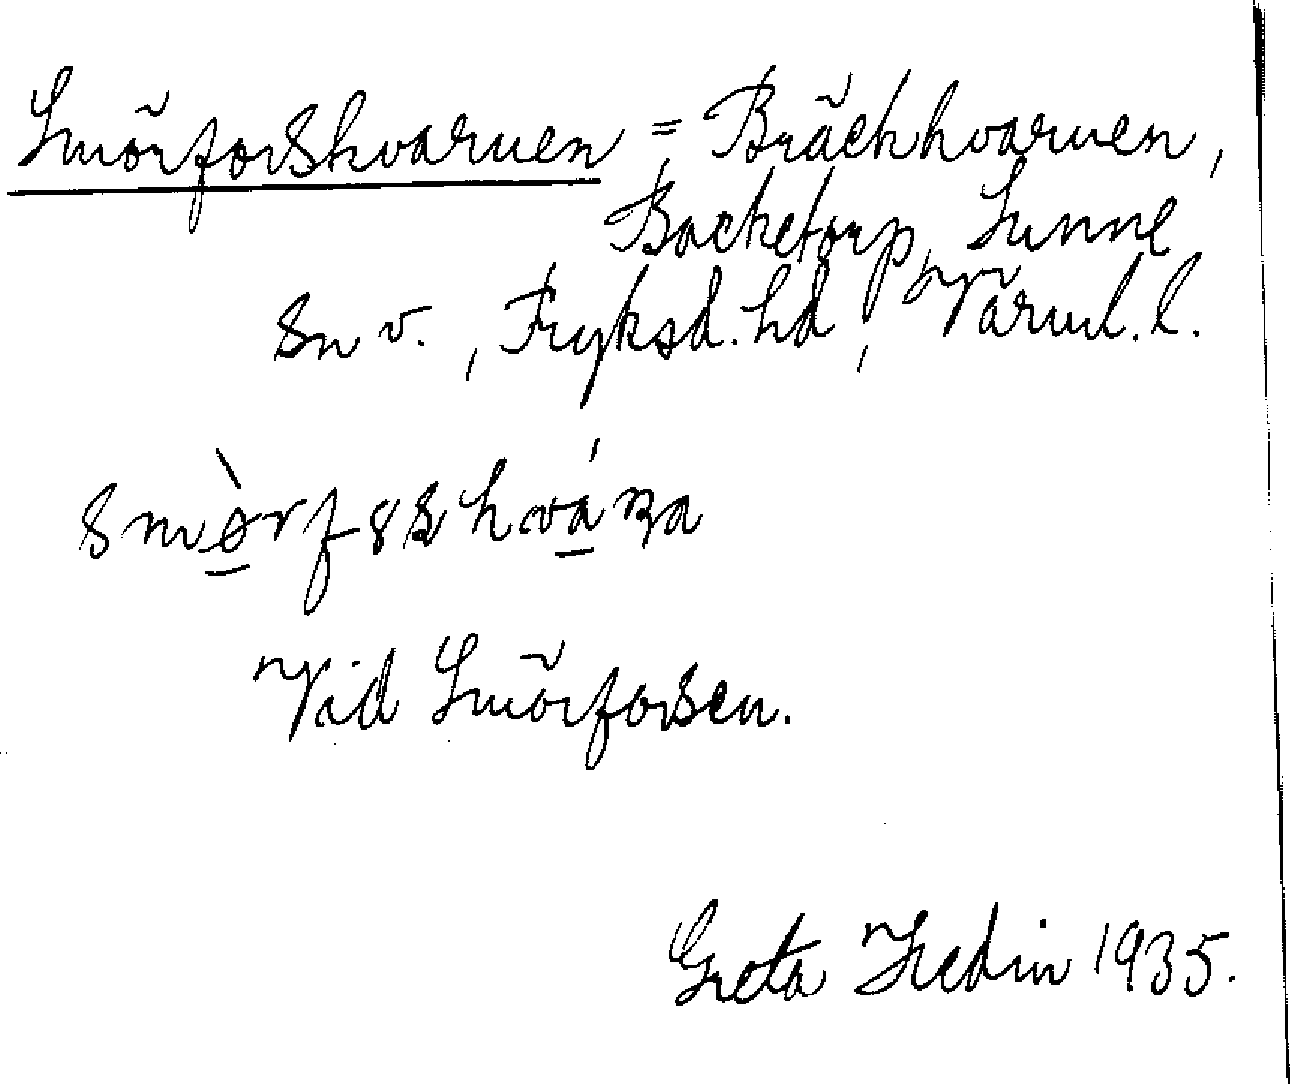 Smörforskvarnen = Bräckkvarnen,
Backetorp, Sunne
sn v., Fryksd. hd, Värml. l.
Vid Smörforsen.
Greta Hedin 1935.